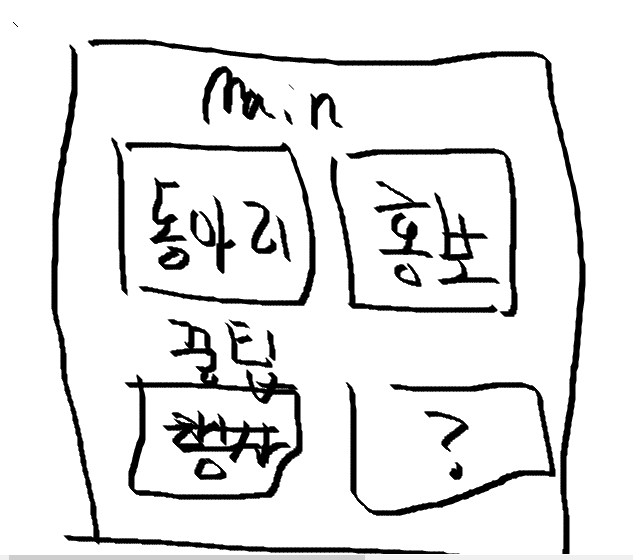 Main
동아리 홍보
꿀팁
?